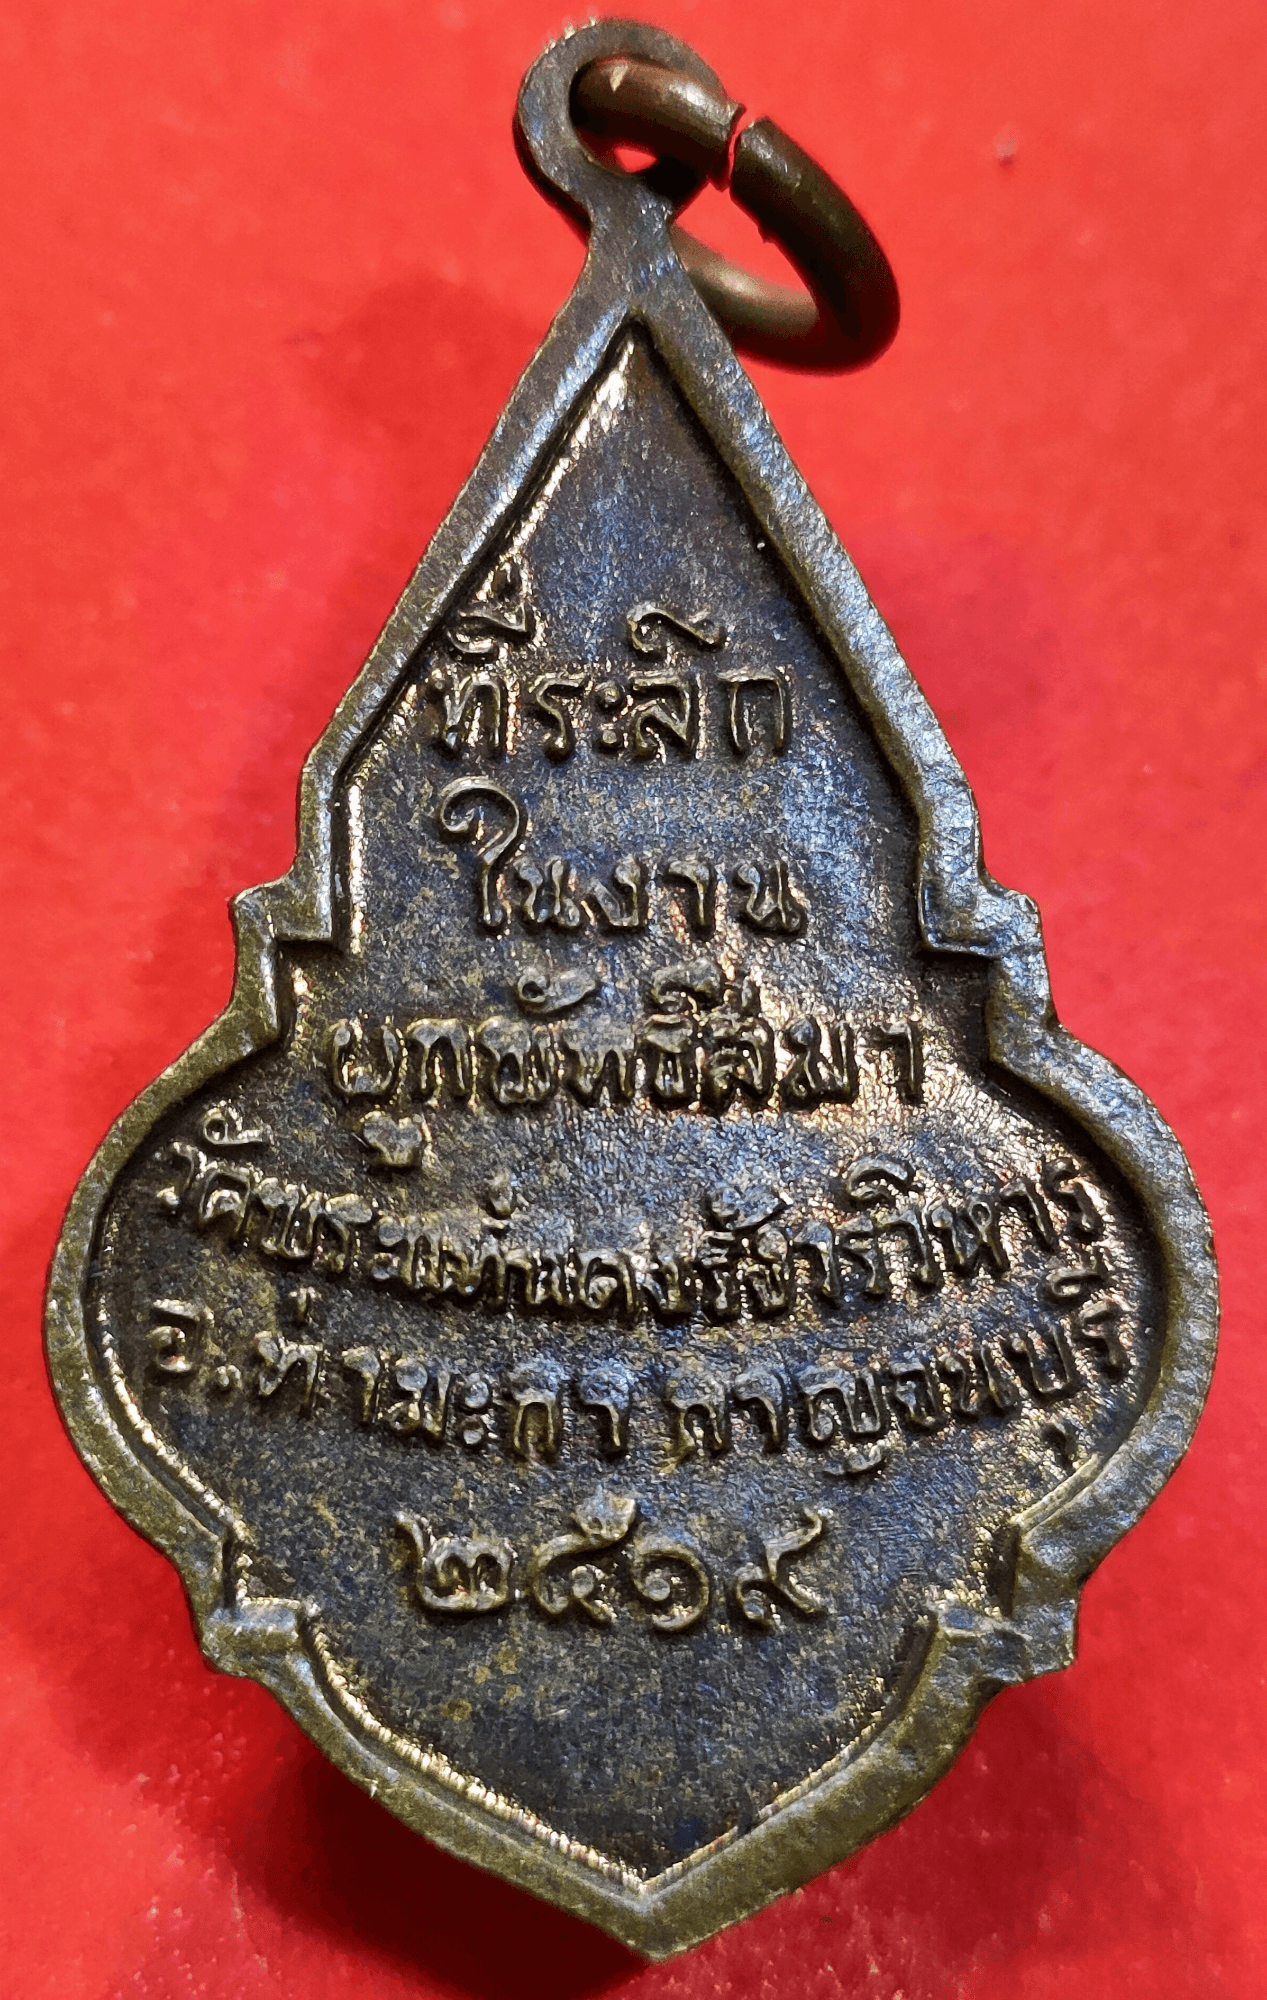 ที่ระลึก
ในงาน
ผูกพัทธสีมา
วัดพระแท่นดงรังวรวิหาร
อ.ท่ามะกา กาญจนบุรี
๒๕๑๙